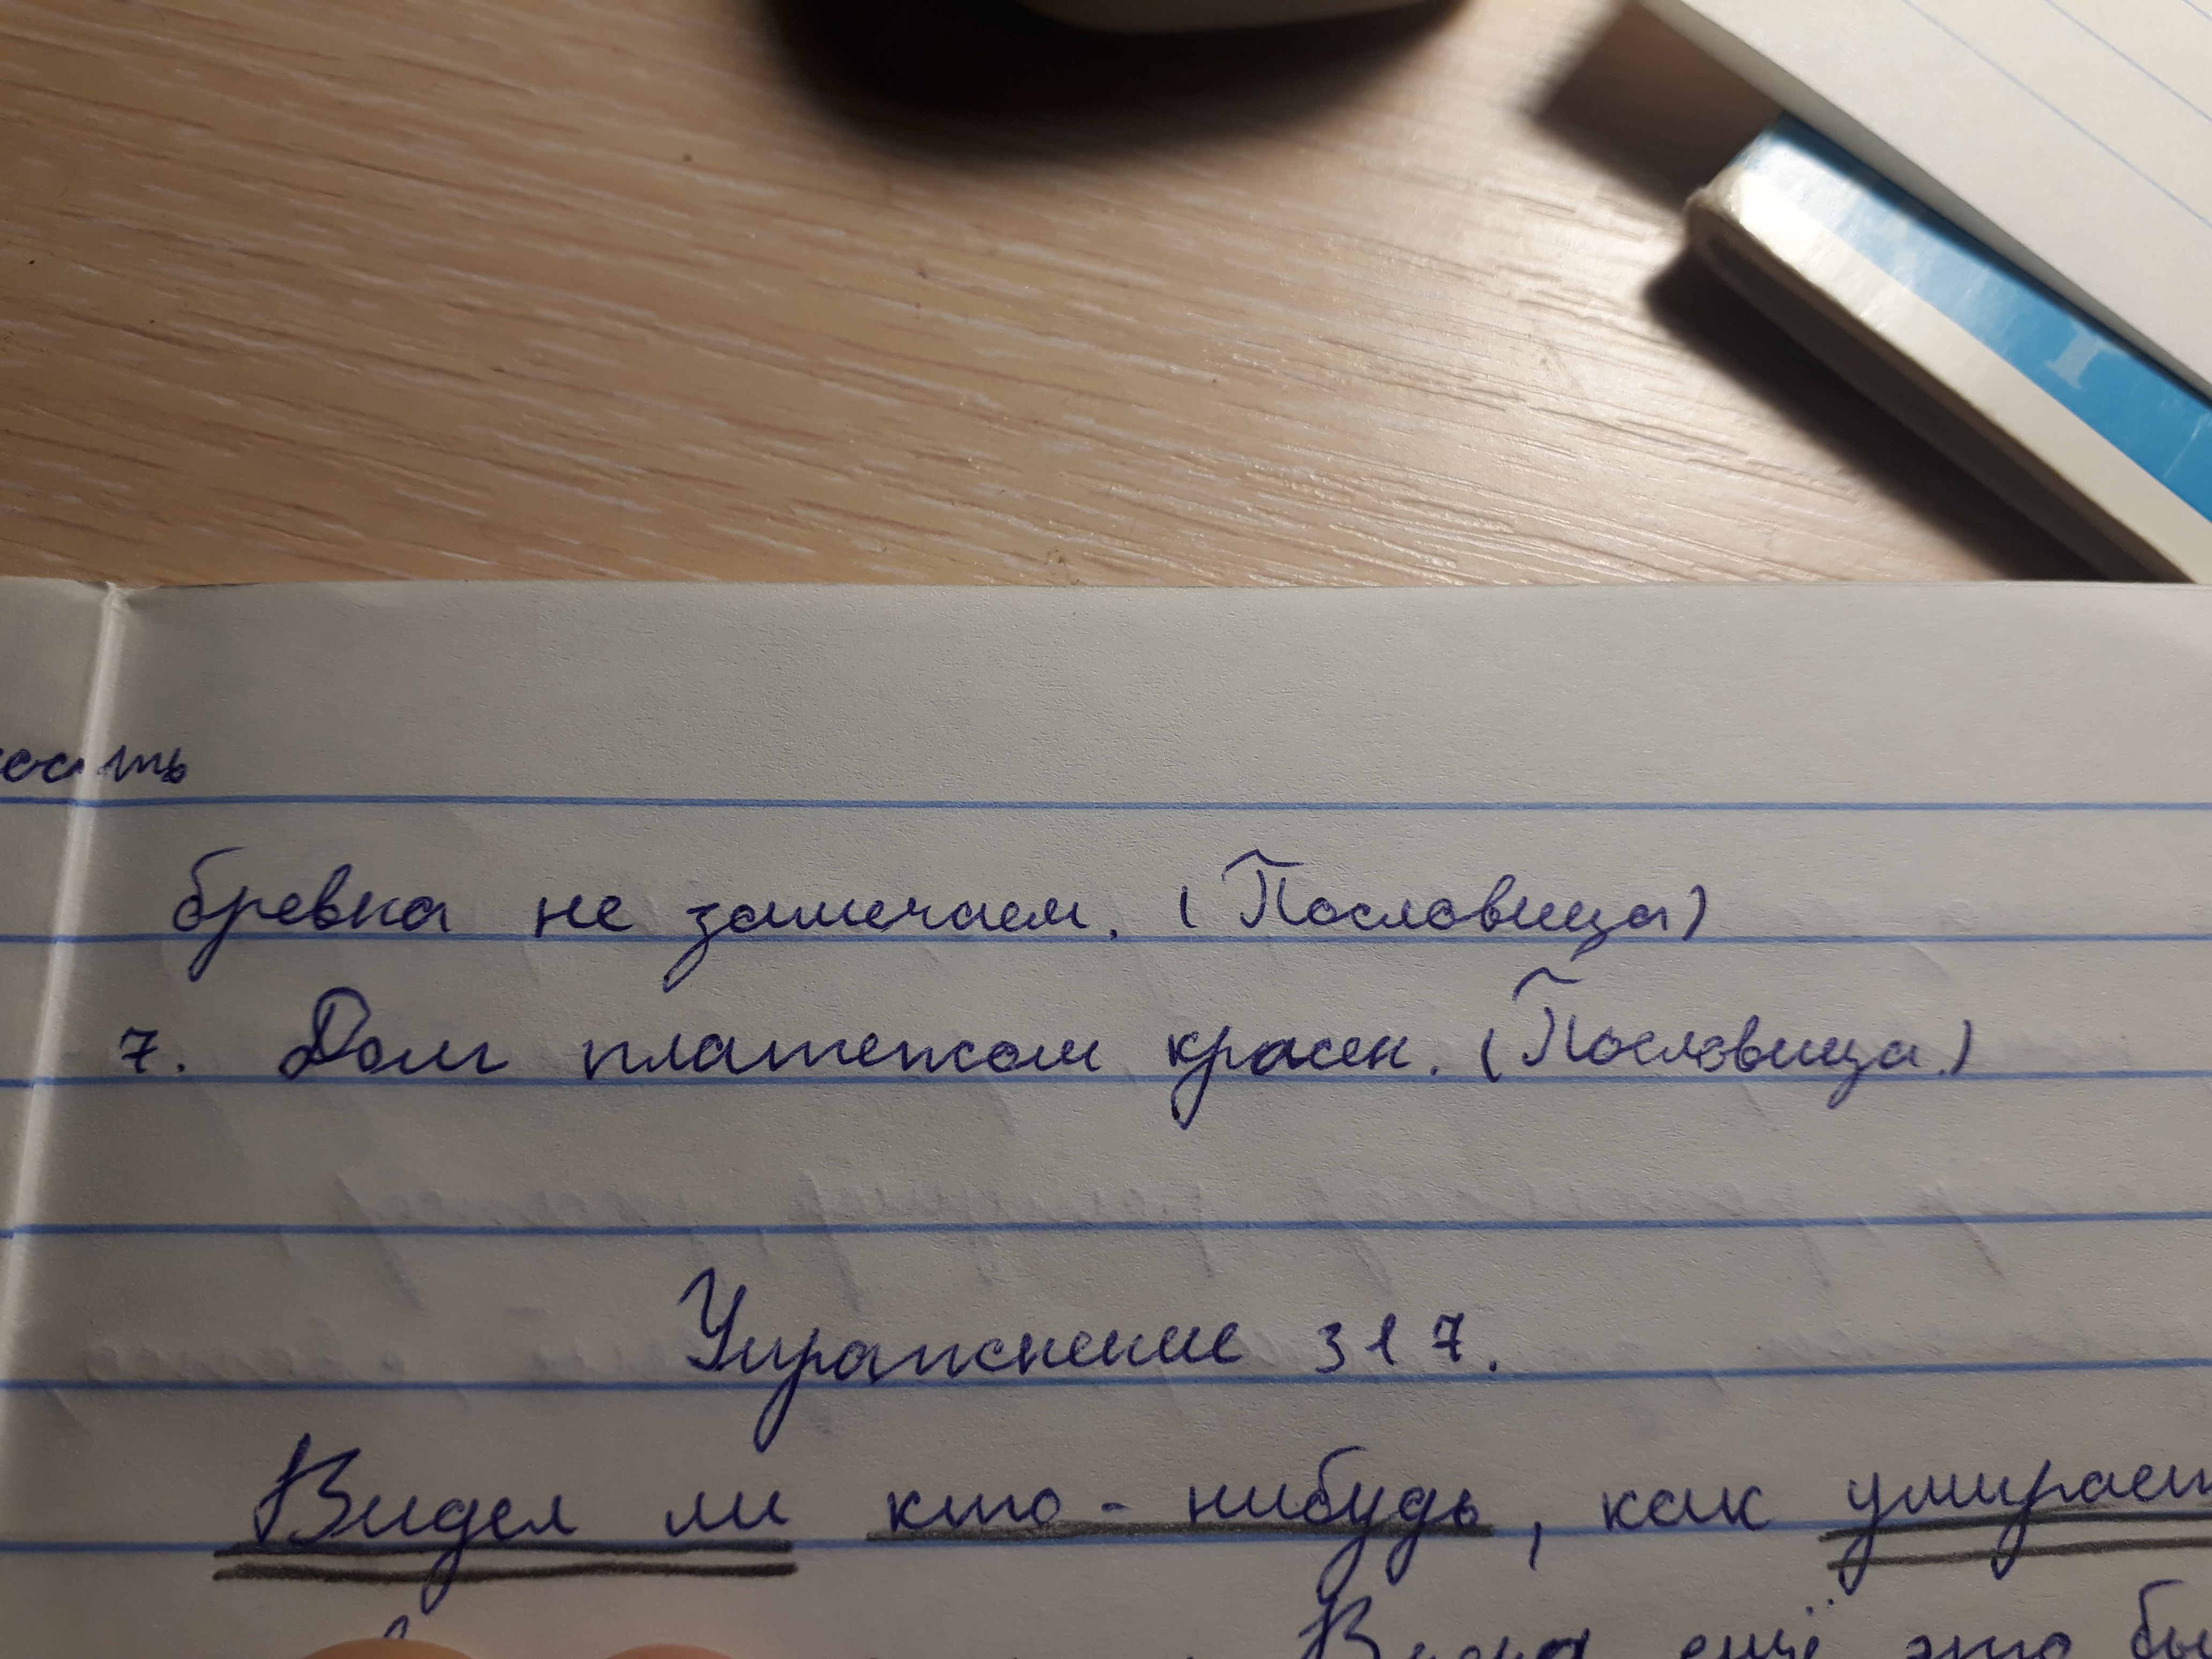 бревна не замечаем. (Пословица)
7. Долг платежом красен. (Пословица.)
Упражнение 317.
Видел ли кто-нибудь, как умирает
ещё это